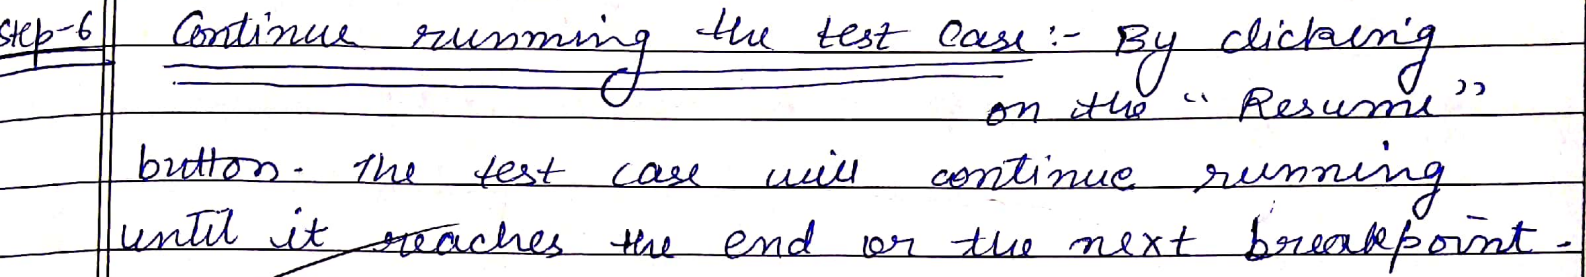 Step-6 Continue running the test case :- By clicking
on the "Resume"
button. The test case will continue running
until it reaches the end or the next breakpoint.